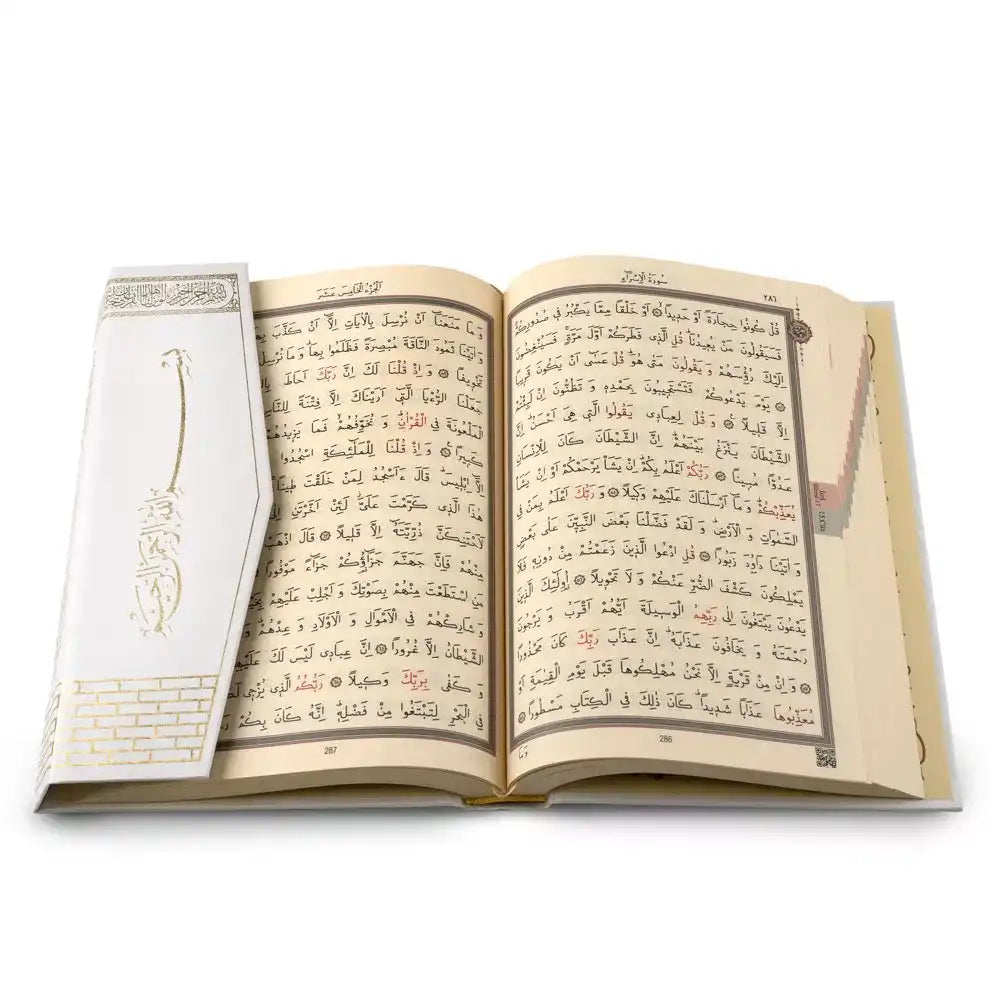 سُورَةُ الْاِسْرَاءِ
٢٨٦
قُلْ كُونُوا حِجَارَةً اَوْ حَدِيداًۙ ۝ اَوْ خَلْقاً مِمَّا يَكْبُرُ فٖي صُدُورِكُمْۚ
فَسَيَقُولُونَ مَنْ يُعٖيدُنَاۜ قُلِ الَّذٖي فَطَرَكُمْ اَوَّلَ مَرَّةٍۚ فَسَيُنْغِضُونَ
اِلَيْكَ رُؤُسَهُمْ وَ يَقُولُونَ مَتٰى هُوَۜ قُلْ عَسٰٓى اَنْ يَكُونَ قَرٖيباً
۝ يَوْمَ يَدْعُوكُمْ فَتَسْتَجٖيبُونَ بِحَمْدِهٖ وَ تَظُنُّونَ اِنْ لَبِثْتُمْ
اِلَّا قَلٖيلاً۟ ۝ وَ قُلْ لِعِبَادٖي يَقُولُوا الَّتٖي هِيَ اَحْسَنُۜ اِنَّ
الشَّيْطَانَ يَنْزَغُ بَيْنَهُمْۜ اِنَّ الشَّيْطَانَ كَانَ لِلْاِنْسَانِ
عَدُوًّا مُبٖيناً ۝ رَبُّكُمْ اَعْلَمُ بِكُمْۜ اِنْ يَشَأْ يَرْحَمْكُمْ اَوْ اِنْ يَشَأْ
يُعَذِّبْكُمْۜ وَ مَٓا اَرْسَلْنَاكَ عَلَيْهِمْ وَكٖيلاً ۝ وَ رَبُّكَ اَعْلَمُ بِمَنْ فِي
السَّمٰوَاتِ وَ الْاَرْضِۜ وَ لَقَدْ فَضَّلْنَا بَعْضَ النَّبِيّٖنَ عَلٰى بَعْضٍ
وَ اٰتَيْنَا دَاوُدَ زَبُوراً ۝ قُلِ ادْعُوا الَّذٖينَ زَعَمْتُمْ مِنْ دُونِهٖ فَلَا
يَمْلِكُونَ كَشْفَ الضُّرِّ عَنْكُمْ وَ لَا تَحْوٖيلاً ۝ اُو۬لٰٓئِكَ الَّذٖينَ
يَدْعُونَ يَبْتَغُونَ اِلٰى رَبِّهِمُ الْوَسٖيلَةَ اَيُّهُمْ اَقْرَبُ وَ يَرْجُونَ
رَحْمَتَهُ وَ يَخَافُونَ عَذَابَهُۜ اِنَّ عَذَابَ رَبِّكَ كَانَ مَحْذُوراً
۝ وَ اِنْ مِنْ قَرْيَةٍ اِلَّا نَحْنُ مُهْلِكُوهَا قَبْلَ يَوْمِ الْقِيٰمَةِ اَوْ
مُعَذِّبُوهَا عَذَاباً شَدٖيداًۜ كَانَ ذٰلِكَ فِي الْكِتَابِ مَسْطُوراً ۝
286
وَمَا
اَلْجُزْءُ الْخَامِسَ عَشَرَ
وَ مَا مَنَعَنَٓا اَنْ نُرْسِلَ بِالْاٰيَاتِ اِلَّٓا اَنْ كَذَّبَ بِهَا
وَ اٰتَيْنَا ثَمُودَ النَّاقَةَ مُبْصِرَةً فَظَلَمُوا بِهَاۜ وَ مَا نُرْسِلُ
تَخْوٖيفاً ۝ وَ اِذْ قُلْنَا لَكَ اِنَّ رَبَّكَ اَحَاطَ
جَعَلْنَا الرُّءْيَا الَّتٖٓي اَرَيْنَاكَ اِلَّا فِتْنَةً لِلنَّاسِ
الْمَلْعُونَةَ فِي الْقُرْاٰنِۜ وَ نُخَوِّفُهُمْۙ فَمَا يَزٖيدُهُمْ
كَبٖيراً۟ ۝ وَ اِذْ قُلْنَا لِلْمَلٰٓئِكَةِ اسْجُدُوا
اِلَّٓا اِبْلٖيسَۜ قَالَ ءَاَسْجُدُ لِمَنْ خَلَقْتَ طٖيناً
هٰذَا الَّذٖي كَرَّمْتَ عَلَيَّۘ لَئِنْ اَخَّرْتَنِ
لَاَحْتَنِكَنَّ ذُرِّيَّتَهُٓ اِلَّا قَلٖيلاً ۝ قَالَ اذْهَبْ
مِنْهُمْ فَاِنَّ جَهَنَّمَ جَزَٓاؤُكُمْ جَزَٓاءً مَوْفُوراً
مَنِ اسْتَطَعْتَ مِنْهُمْ بِصَوْتِكَ وَ اَجْلِبْ عَلَيْهِمْ
وَ شَارِكْهُمْ فِي الْاَمْوَالِ وَ الْاَوْلَادِ وَ عِدْهُمْۜ
الشَّيْطَانُ اِلَّا غُرُوراً ۝ اِنَّ عِبَادٖي لَيْسَ لَكَ عَلَيْهِمْ
وَ كَفٰى بِرَبِّكَ وَكٖيلاً ۝ رَبُّكُمُ الَّذٖي يُزْجٖي
فِي الْبَحْرِ لِتَبْتَغُوا مِنْ فَضْلِهٖۜ اِنَّهُ كَانَ بِكُمْ
287
بسم الله الرحمن الرحيم